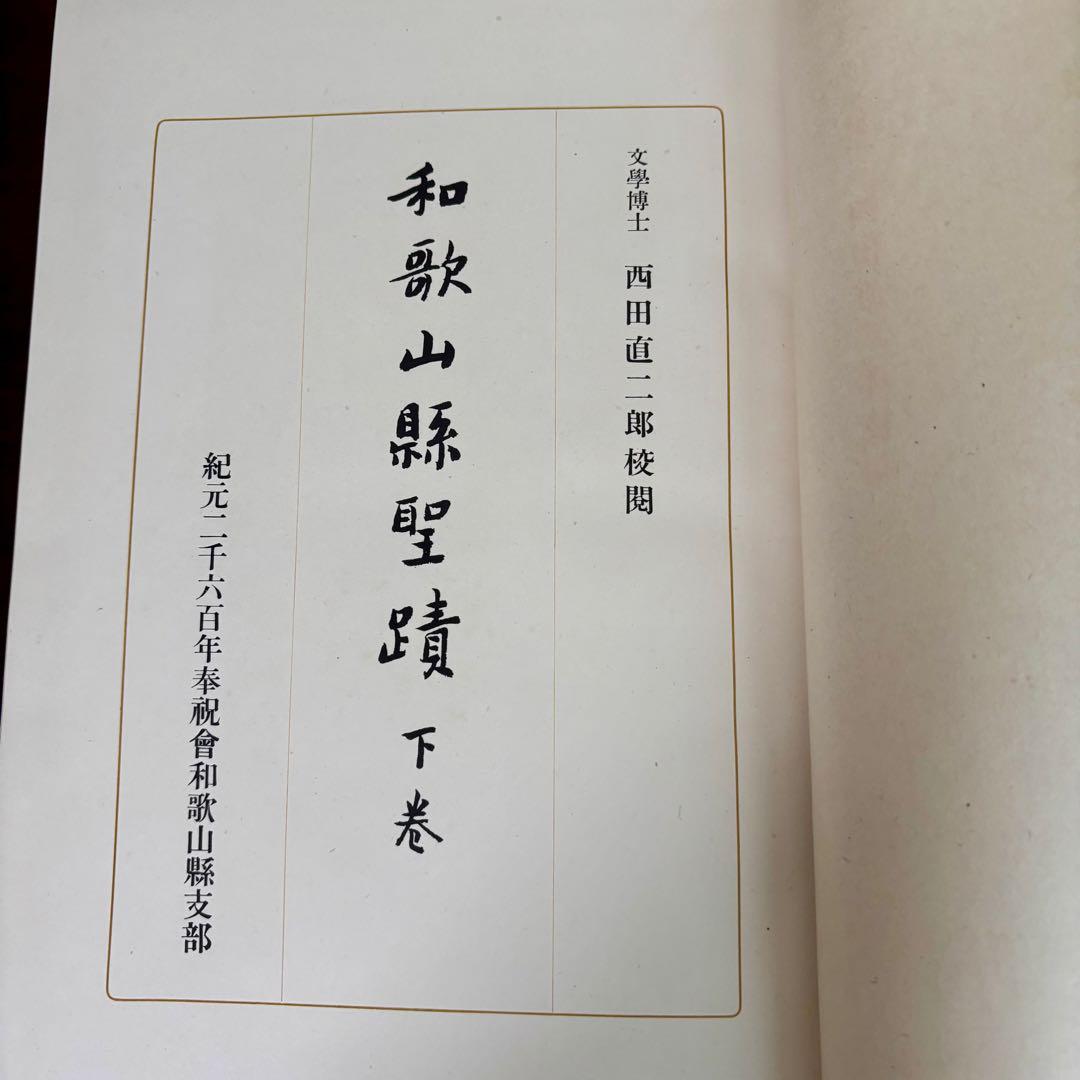 文學博士 西田直二郎校閱
和歌山縣聖蹟 下卷
紀元二千六百年奉祝會和歌山縣支部